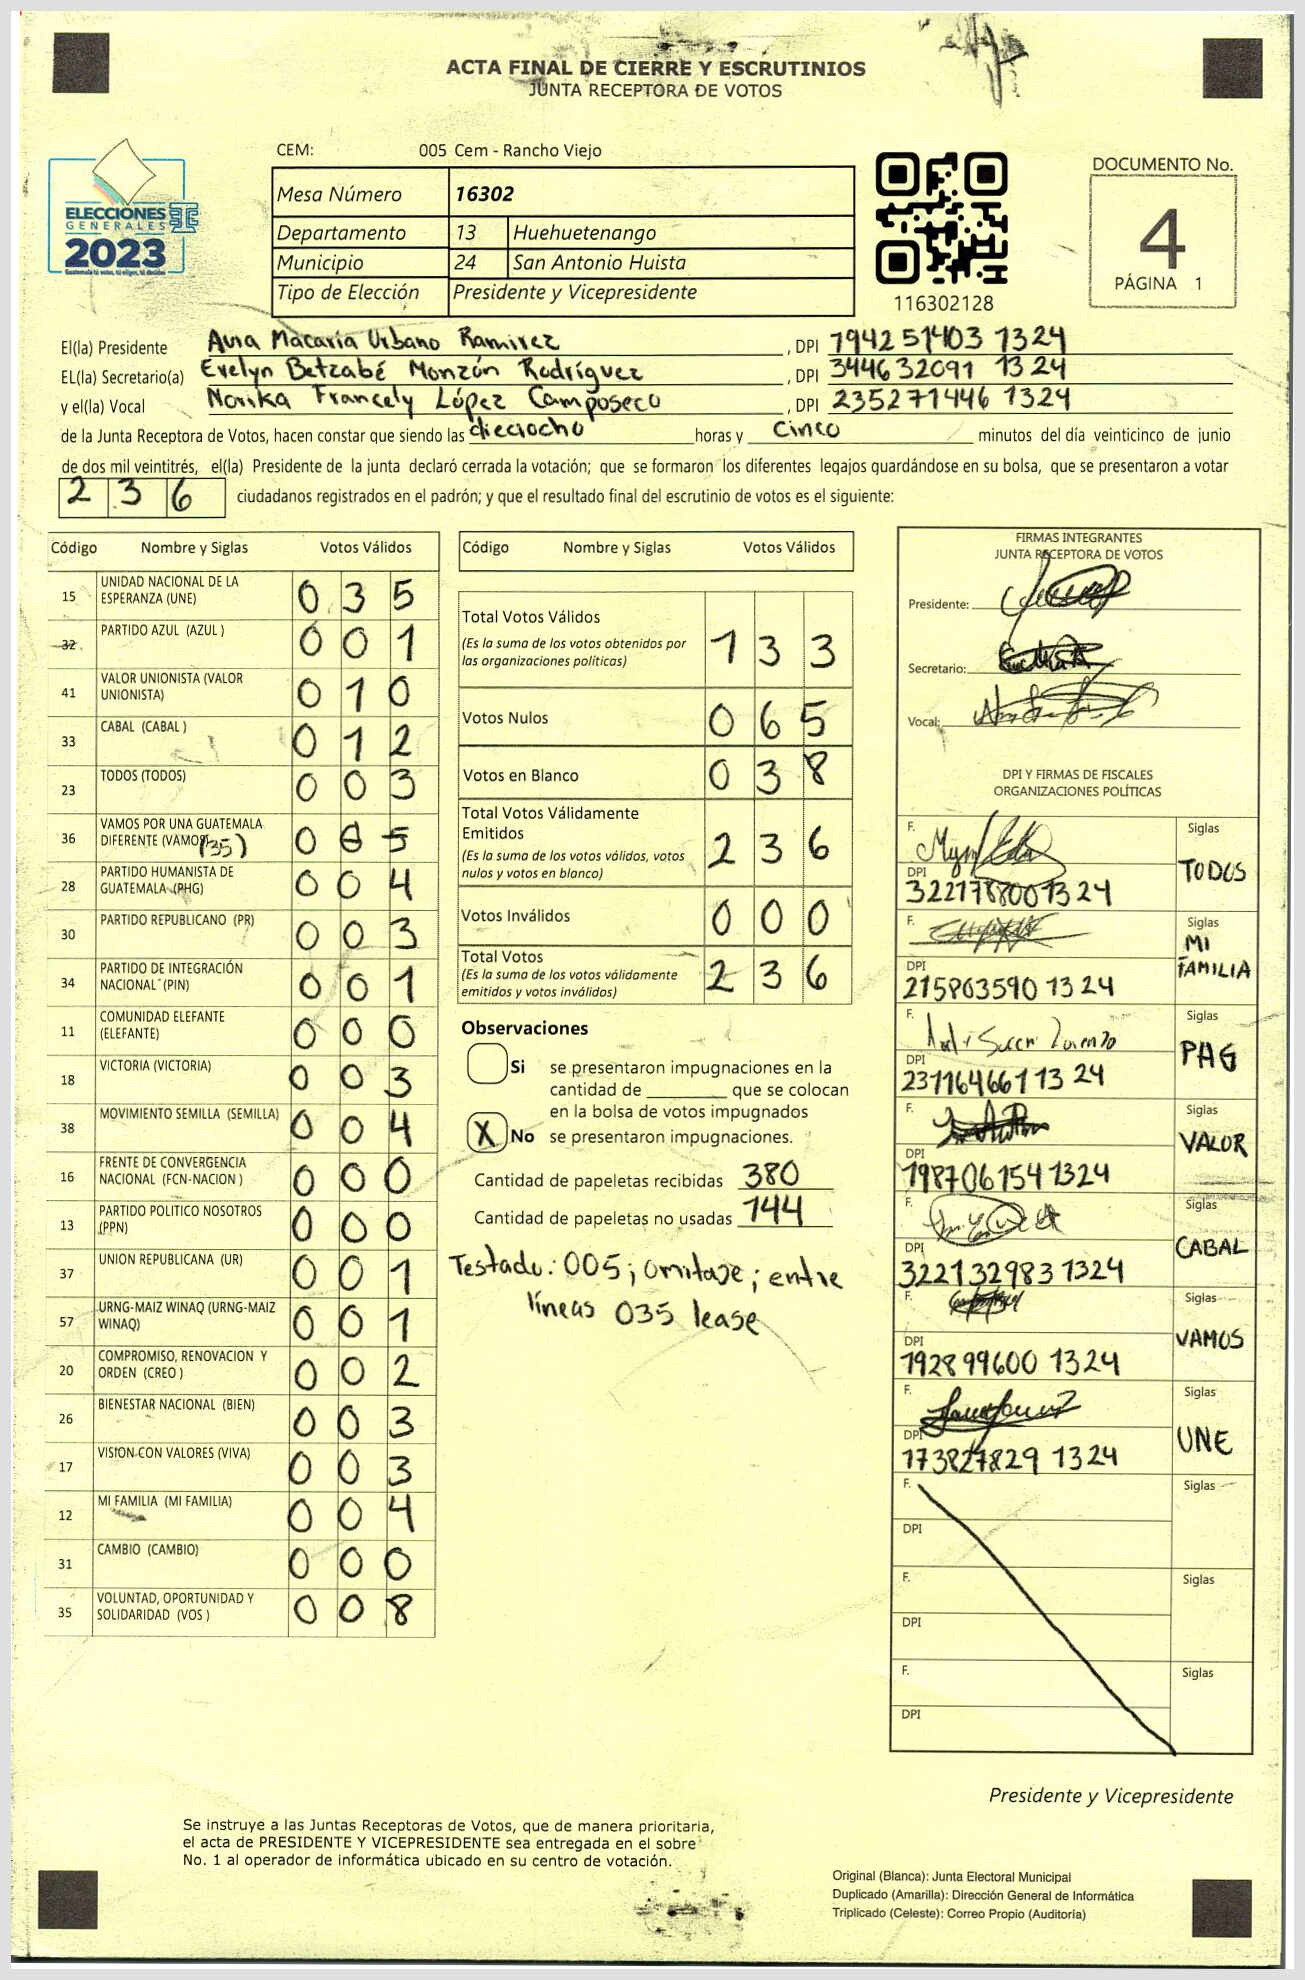 ACTA FINAL DE CIERRE Y ESCRUTINIOS
JUNTA RECEPTORA DE VOTOS
CEM: 005 Cem - Rancho Viejo
DOCUMENTO No.
4
PÁGINA 1
ELECCIONES
GENERALES
2023
Mesa Número 16302
Departamento 13 Huehuetenango
Municipio 24 San Antonio Huista
Tipo de Elección Presidente y Vicepresidente
116302128
El(la) Presidente Aura Macaria Urbano Ramirez, DPI 7942 51403 1324
EL(la) Secretario(a) Evelyn Betzabé Monzón Rodríguez, DPI 344632091 1324
y el(la) Vocal Norika Francely López Camposeco, DPI 235271446 1324
de la Junta Receptora de Votos, hacen constar que siendo las dieciocho horas y cinco minutos del día veinticinco de junio
de dos mil veintitrés, el(la) Presidente de la junta declaró cerrada la votación; que se formaron los diferentes legajos guardándose en su bolsa, que se presentaron a votar
2 3 6 ciudadanos registrados en el padrón; y que el resultado final del escrutinio de votos es el siguiente:
Código Nombre y Siglas Votos Válidos
15 UNIDAD NACIONAL DE LA ESPERANZA (UNE) 0 3 5
32 PARTIDO AZUL (AZUL ) 0 0 1
41 VALOR UNIONISTA (VALOR UNIONISTA) 0 1 0
33 CABAL (CABAL ) 0 1 2
23 TODOS (TODOS) 0 0 3
36 VAMOS POR UNA GUATEMALA DIFERENTE (VAMOS) (35) 0 6 5
28 PARTIDO HUMANISTA DE GUATEMALA (PHG) 0 0 4
30 PARTIDO REPUBLICANO (PR) 0 0 3
34 PARTIDO DE INTEGRACIÓN NACIONAL (PIN) 0 0 1
11 COMUNIDAD ELEFANTE (ELEFANTE) 0 0 0
18 VICTORIA (VICTORIA) 0 0 3
38 MOVIMIENTO SEMILLA (SEMILLA) 0 0 4
16 FRENTE DE CONVERGENCIA NACIONAL (FCN-NACION ) 0 0 0
13 PARTIDO POLITICO NOSOTROS (PPN) 0 0 0
37 UNION REPUBLICANA (UR) 0 0 1
57 URNG-MAIZ WINAQ (URNG-MAIZ WINAQ) 0 0 1
20 COMPROMISO, RENOVACION Y ORDEN (CREO ) 0 0 2
26 BIENESTAR NACIONAL (BIEN) 0 0 3
17 VISION CON VALORES (VIVA) 0 0 3
12 MI FAMILIA (MI FAMILIA) 0 0 4
31 CAMBIO (CAMBIO) 0 0 0
35 VOLUNTAD, OPORTUNIDAD Y SOLIDARIDAD (VOS ) 0 0 8
Código Nombre y Siglas Votos Válidos
Total Votos Válidos
(Es la suma de los votos obtenidos por
las organizaciones políticas) 1 3 3
Votos Nulos 0 6 5
Votos en Blanco 0 3 8
Total Votos Válidamente
Emitidos
(Es la suma de los votos válidos, votos
nulos y votos en blanco) 2 3 6
Votos Inválidos 0 0 0
Total Votos
(Es la suma de los votos válidamente
emitidos y votos inválidos) 2 3 6
Observaciones
Si se presentaron impugnaciones en la
cantidad de ________ que se colocan
en la bolsa de votos impugnados
X No se presentaron impugnaciones.
Cantidad de papeletas recibidas 380
Cantidad de papeletas no usadas 144
Testado: 005; omitase; entre
líneas 035 lease
FIRMAS INTEGRANTES
JUNTA RECEPTORA DE VOTOS
Presidente:
Secretario:
Vocal:
DPI Y FIRMAS DE FISCALES
ORGANIZACIONES POLÍTICAS
F. Siglas
DPI TODOS
322178800 1324
F. Siglas
DPI MI FAMILIA
215803590 1324
F. Siglas
DPI PHG
231164661 13 24
F. Siglas
DPI VALOR
198706154 1324
F. Siglas
DPI CABAL
322132983 1324
F. Siglas
DPI VAMOS
192899600 1324
F. Siglas
DPI UNE
173827829 1324
F. Siglas
DPI
F. Siglas
DPI
F. Siglas
DPI
Presidente y Vicepresidente
Se instruye a las Juntas Receptoras de Votos, que de manera prioritaria,
el acta de PRESIDENTE Y VICEPRESIDENTE sea entregada en el sobre
No. 1 al operador de informática ubicado en su centro de votación.
Original (Blanca): Junta Electoral Municipal
Duplicado (Amarilla): Dirección General de Informática
Triplicado (Celeste): Correo Propio (Auditoría)